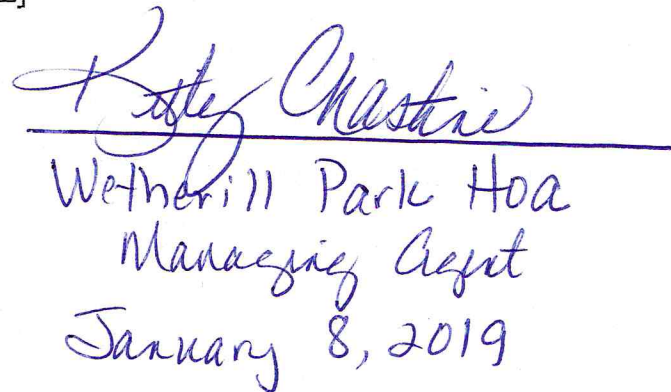 Chastine
Wetherill Park Hoa
Managing Agent
January 8, 2019